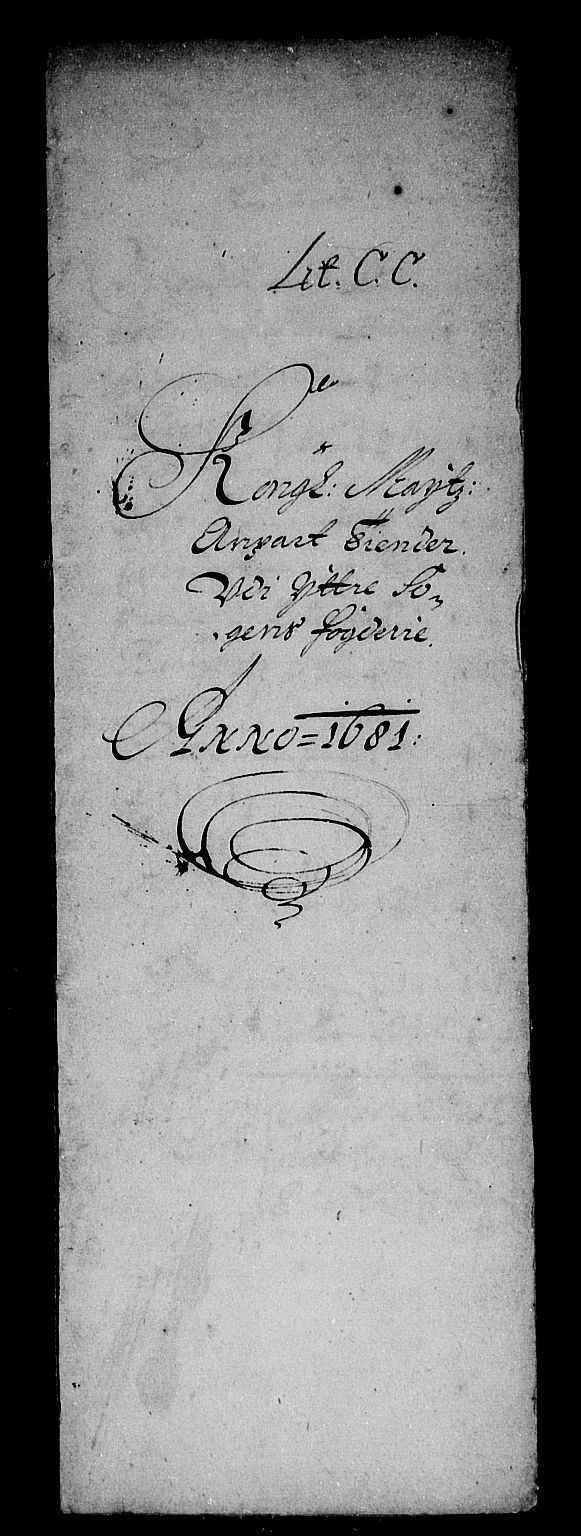 Lit. C. C.
Kongl: Mayttz:
Anpart Tiender.
Vdi Yttre So-
gens fogderie.
Anno = 1681: